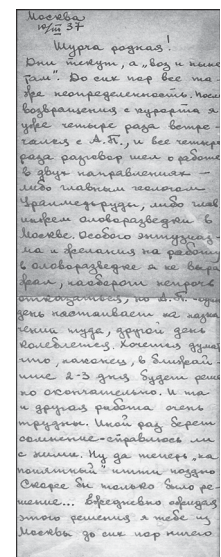 Москва
10/III 37
Шурча родная!
Дни текут, а „воз и ныне
там". До сих пор все та
же неопределенность. После
возвращения с курорта я
уже четыре раза встре-
чался с А.П., и все четыре
раза разговор шел о работе
в двух направлениях –
либо главным геологом
Уралмедьруды, либо глав
инжем оловоразведки в
Москве. Особого энтузиаз-
ма и желания на работу
в оловоразведке я не выра
жал, наоборот непрочь
отказаться, но А.П. один
день настаивает на назна
чении туда, другой день
колеблется. Хочется думать
что, наконец, в ближай-
шие 2-3 дня будет реше
но окончательно. И та
и другая работа очень
трудны. Иной раз берет
сомнение – справлюсь ли
с ними. Ну да теперь
понятный" идти поздно
Скорее бы только было ре-
шение... Ежедневно ожидая
этого решения я тебе из
Москвы до сих пор ничего